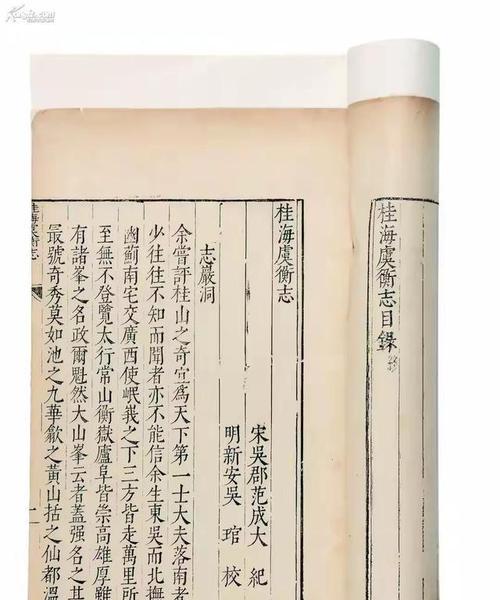 桂海虞衡志目錄終
桂海虞衡志
宋吳郡范成大 紀
明新安吳 琯 校
志巖洞
余嘗評桂山之奇宜爲天下第一士大夫落南者
少往往不知而聞者亦不能信余生東吳而北撫
幽薊南宅交廣西使岷峩之下三方皆走萬里所
至無不登覽太行常山衡嶽廬阜皆崇高雄厚雖
有諸峯之名政爾魁然大山峯云者蓋强名之其
最號奇秀莫如池之九華歙之黃山括之仙都溫
桂海虞衡志
一